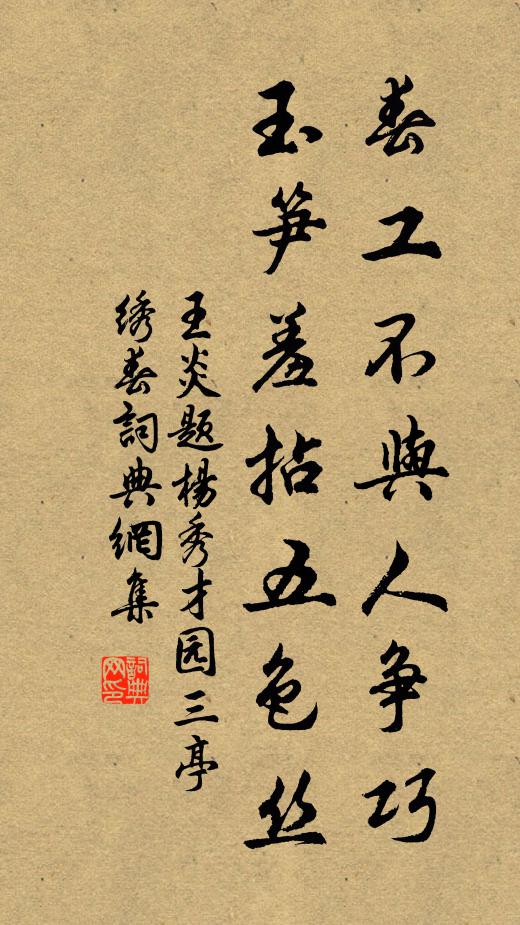 春工不與人争巧
玉笋羞拈五色丝
王炎题楊秀才园三亭
绣春詞典網集
詞典
网印